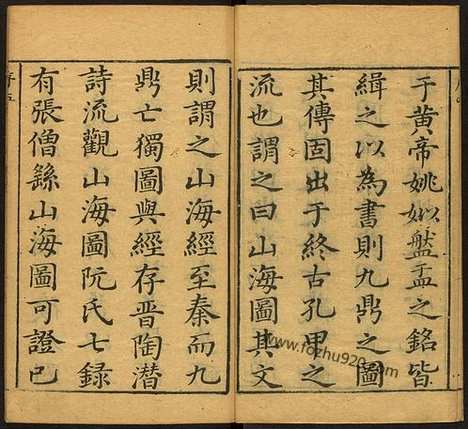 于黃帝姚姒盤盂之銘皆
緝之以為書則九鼎之圖
其傳固出于終古孔甲之
流也謂之曰山海圖其文
則謂之山海經至秦而九
鼎亡獨圖與經存晋陶潛
詩流觀山海圖阮氏七錄
有張僧繇山海圖可證已
www.fozhu920.com